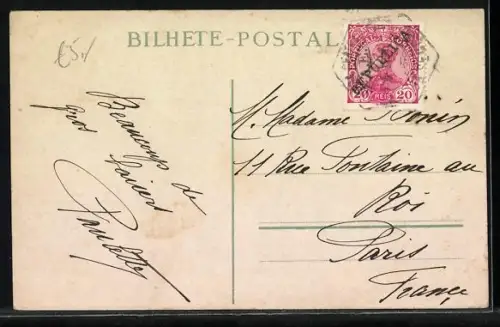 £5.
BILHETE-POSTAL
REPUBLICA
20 REIS 20
Beaucoup de
gros baisers
Paulette
M. Madame Bonin
11 Rue Fontaine au
Roi
Paris
France